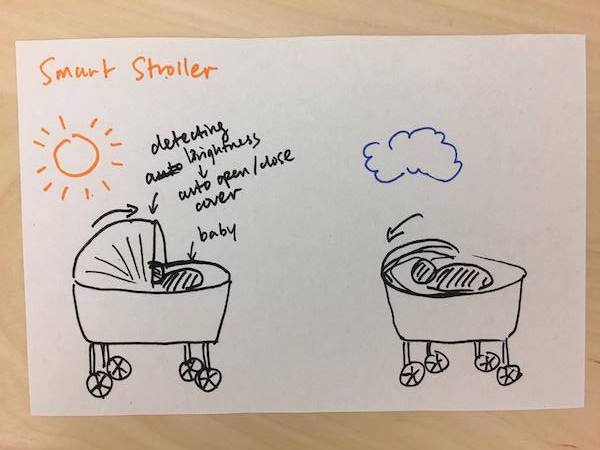 Smart Stroller
detecting
auto brightness
auto open/close
cover
baby